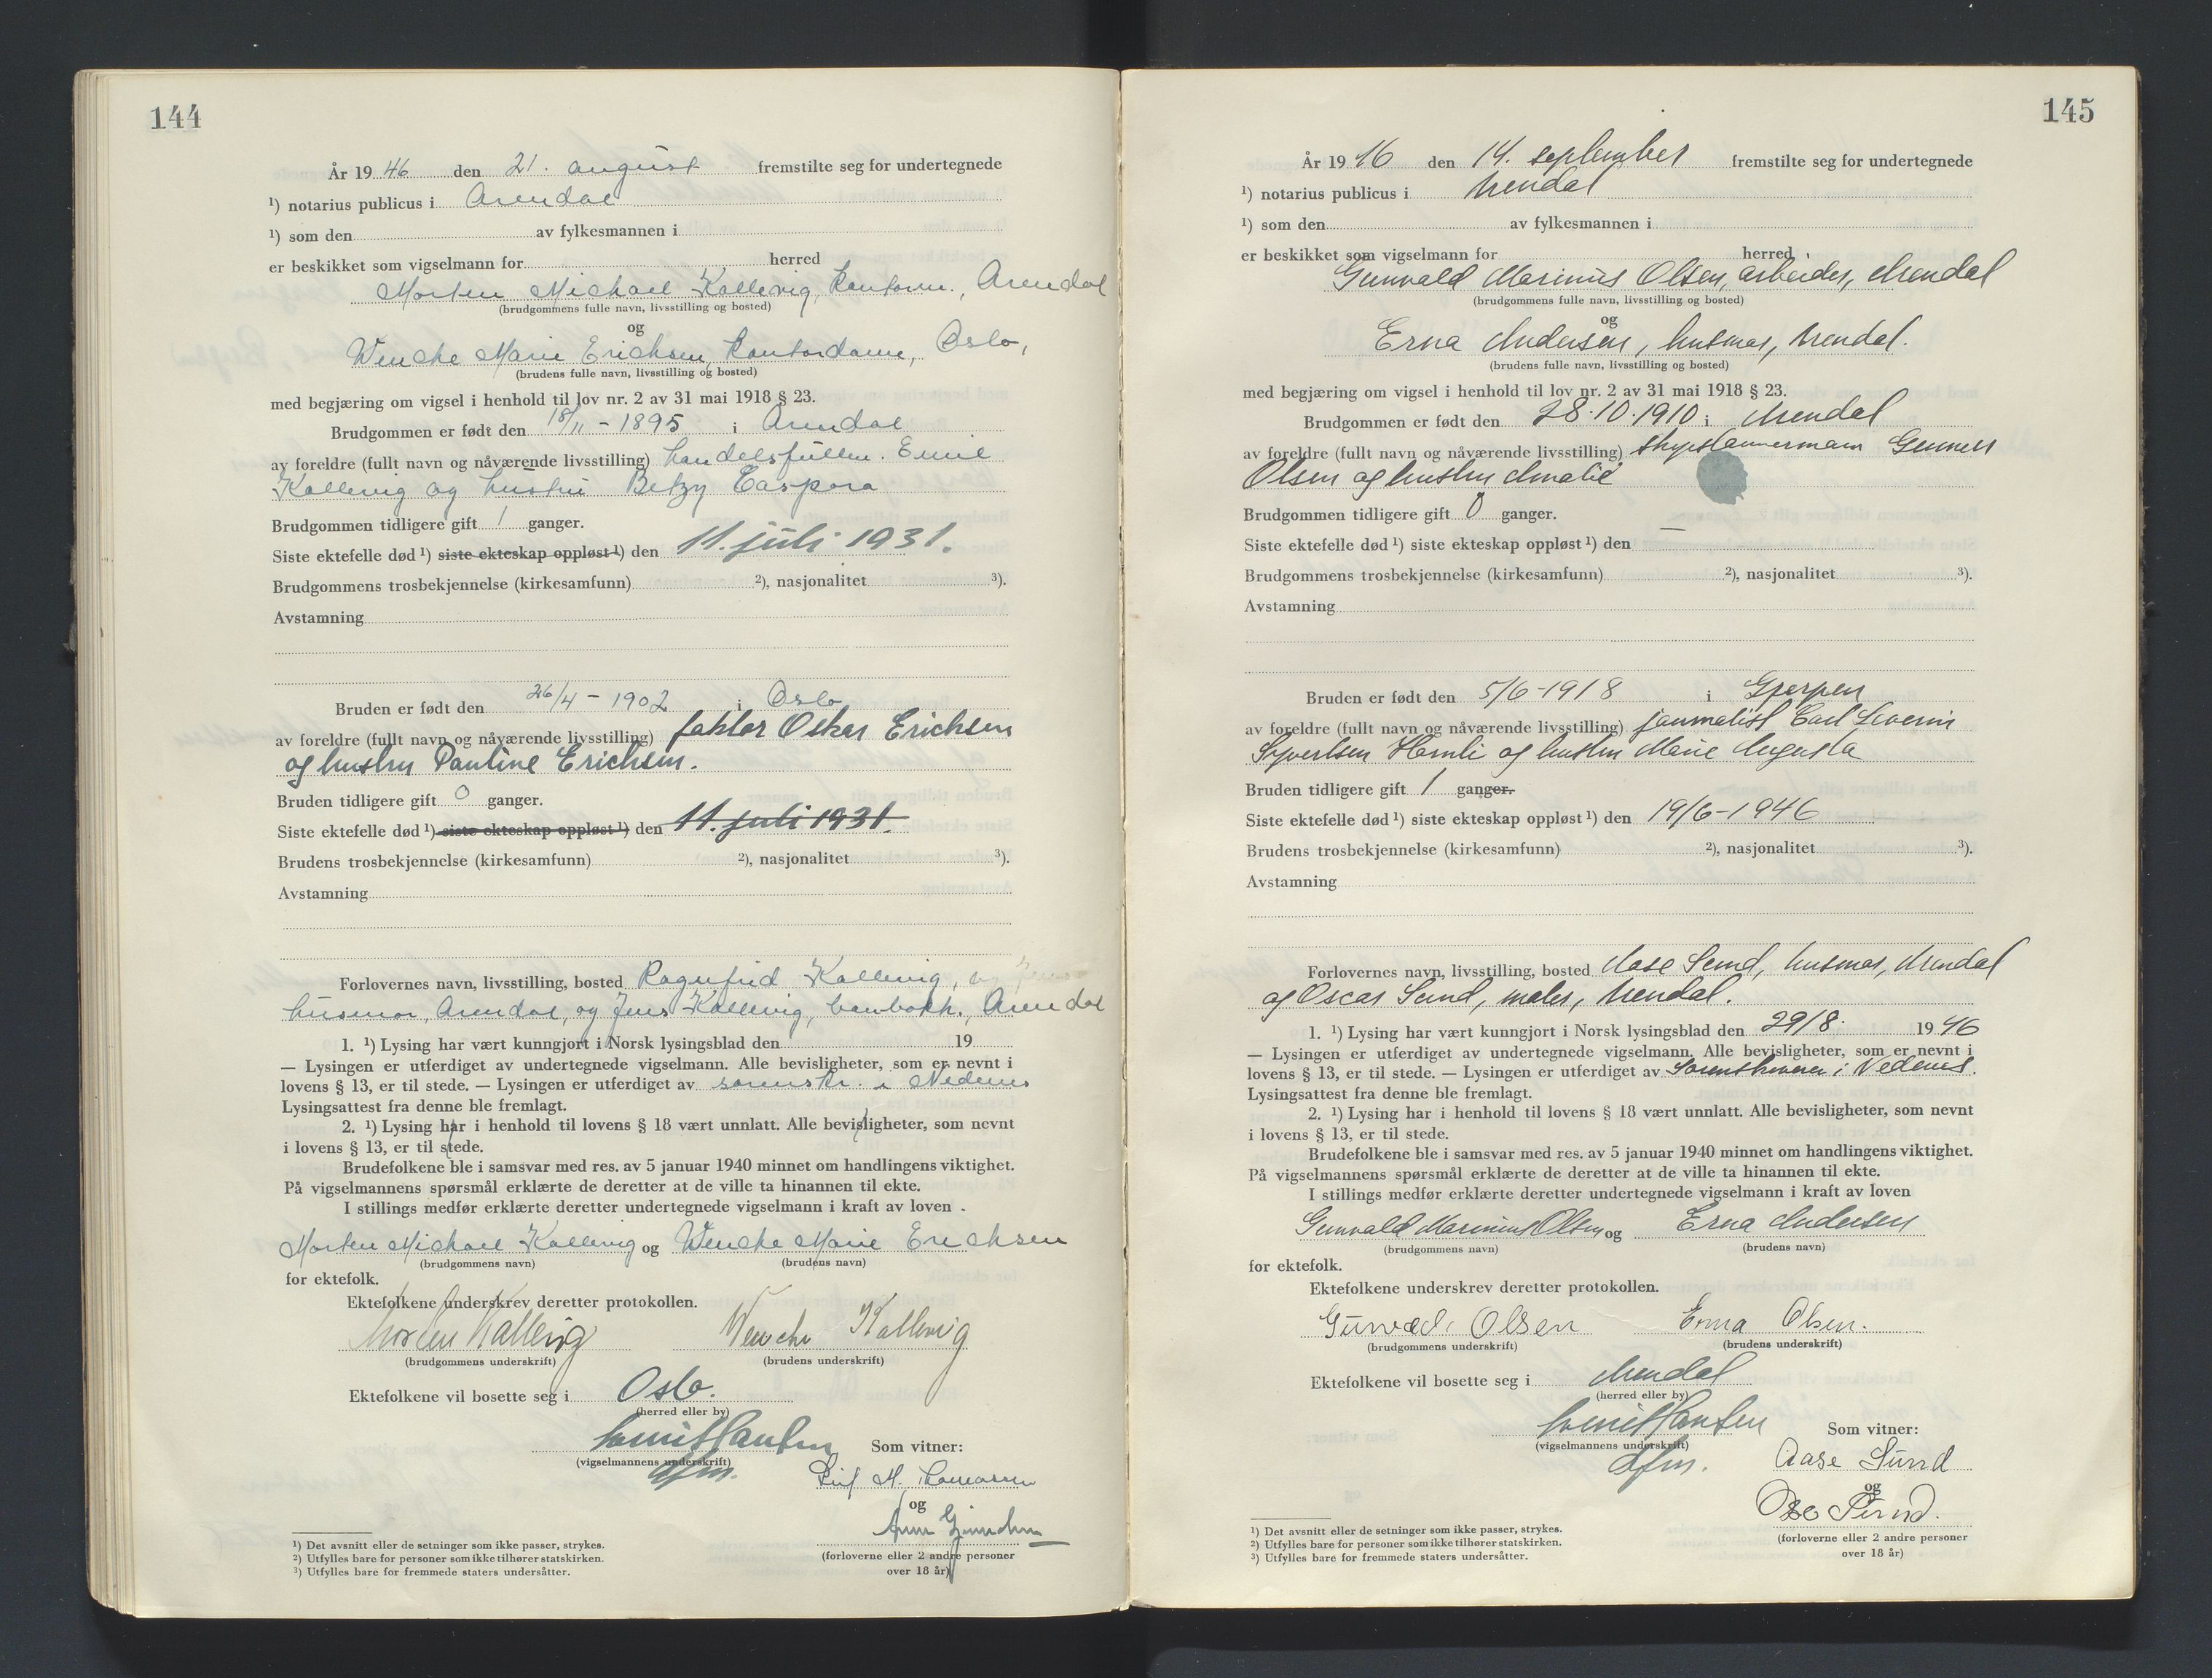 144
År 19 46 den 21. august fremstilte seg for undertegnede
¹) notarius publicus i Arendal
¹) som den av fylkesmannen i
er beskikket som vigselmann for herred
Morten Michael Kallevig, kontorm., Arendal
(brudgommens fulle navn, livsstilling og bosted)
og
Wenche Marie Erichsen, kontordame, Oslo,
(brudens fulle navn, livsstilling og bosted)
med begjæring om vigsel i henhold til lov nr. 2 av 31 mai 1918 § 23.
Brudgommen er født den 18/11 - 1895 i Arendal
av foreldre (fullt navn og nåværende livsstilling) handelsfullm. Emil
Kallevig og hustru Betzy Caspara
Brudgommen tidligere gift 1 ganger.
Siste ektefelle død ¹) siste ekteskap oppløst ¹) den 11. juli 1931.
Brudgommens trosbekjennelse (kirkesamfunn) ²), nasjonalitet ³).
Avstamning
Bruden er født den 26/4 - 1902 i Oslo
av foreldre (fullt navn og nåværende livsstilling) faktor Oskar Erichsen
og hustru Pauline Erichsen.
Bruden tidligere gift 0 ganger.
Siste ektefelle død ¹) siste ekteskap oppløst ¹) den 11. juli 1931.
Brudens trosbekjennelse (kirkesamfunn) ²), nasjonalitet ³).
Avstamning
Forlovernes navn, livsstilling, bosted Ragnfrid Kallevig,
husmor, Arendal, og Jens Kallevig, Arendal
1. ¹) Lysing har vært kunngjort i Norsk lysingsblad den 19
— Lysingen er utferdiget av undertegnede vigselmann. Alle bevisligheter, som er nevnt i
lovens § 13, er til stede. — Lysingen er utferdiget av sorenskr. i Nedenes
Lysingsattest fra denne ble fremlagt.
2. ¹) Lysing har i henhold til lovens § 18 vært unnlatt. Alle bevisligheter, som nevnt
i lovens § 13, er til stede.
Brudefolkene ble i samsvar med res. av 5 januar 1940 minnet om handlingens viktighet.
På vigselmannens spørsmål erklærte de deretter at de ville ta hinannen til ekte.
I stillings medfør erklærte deretter undertegnede vigselmann i kraft av loven .
Morten Michael Kallevig og Wenche Marie Erichsen
(brudgommens navn) (brudens navn)
for ektefolk.
Ektefolkene underskrev deretter protokollen.
Morten Kallevig Wenche Kallevig
(brudgommens underskrift) (brudens underskrift)
Ektefolkene vil bosette seg i Oslo.
(herred eller by)
(vigselmannens underskrift)
dfm.
Som vitner:
og
(forloverne eller 2 andre personer
over 18 år)
¹) Det avsnitt eller de setninger som ikke passer, strykes.
²) Utfylles bare for personer som ikke tilhører statskirken.
³) Utfylles bare for fremmede staters undersåtter.
145
År 19 46 den 14. september fremstilte seg for undertegnede
¹) notarius publicus i Arendal
¹) som den av fylkesmannen i
er beskikket som vigselmann for herred
Gunvald Marinius Olsen, arbeider, Arendal
(brudgommens fulle navn, livsstilling og bosted)
og
Erna Andersen, husmor, Arendal.
(brudens fulle navn, livsstilling og bosted)
med begjæring om vigsel i henhold til lov nr. 2 av 31 mai 1918 § 23.
Brudgommen er født den 28.10.1910 i Arendal
av foreldre (fullt navn og nåværende livsstilling) skipstømmermann
Olsen og hustru Amalie
Brudgommen tidligere gift 0 ganger.
Siste ektefelle død ¹) siste ekteskap oppløst ¹) den —
Brudgommens trosbekjennelse (kirkesamfunn) ²), nasjonalitet ³).
Avstamning
Bruden er født den 5/6 - 1918 i Gjerpen
av foreldre (fullt navn og nåværende livsstilling) journalist Carl Severin
Syvertsen Hamli og hustru Marie Augusta
Bruden tidligere gift 1 ganger.
Siste ektefelle død ¹) siste ekteskap oppløst ¹) den 19/6 - 1946
Brudens trosbekjennelse (kirkesamfunn) ²), nasjonalitet ³).
Avstamning
Forlovernes navn, livsstilling, bosted Aase Sund, husmor, Arendal
og Oscar Sund, maler, Arendal.
1. ¹) Lysing har vært kunngjort i Norsk lysingsblad den 29/8. 19 46
— Lysingen er utferdiget av undertegnede vigselmann. Alle bevisligheter, som er nevnt i
lovens § 13, er til stede. — Lysingen er utferdiget av Sorenskriveren i Nedenes.
Lysingsattest fra denne ble fremlagt.
2. ¹) Lysing har i henhold til lovens § 18 vært unnlatt. Alle bevisligheter, som nevnt
i lovens § 13, er til stede.
Brudefolkene ble i samsvar med res. av 5 januar 1940 minnet om handlingens viktighet.
På vigselmannens spørsmål erklærte de deretter at de ville ta hinannen til ekte.
I stillings medfør erklærte deretter undertegnede vigselmann i kraft av loven
Gunvald Marinius Olsen og Erna Andersen
(brudgommens navn) (brudens navn)
for ektefolk.
Ektefolkene underskrev deretter protokollen.
Gunvald Olsen Erna Olsen.
(brudgommens underskrift) (brudens underskrift)
Ektefolkene vil bosette seg i Arendal
(herred eller by)
(vigselmannens underskrift)
dfm.
Som vitner:
Aase Sund
og
Sund.
(forloverne eller 2 andre personer
over 18 år)
¹) Det avsnitt eller de setninger som ikke passer, strykes.
²) Utfylles bare for personer som ikke tilhører statskirken.
³) Utfylles bare for fremmede staters undersåtter.